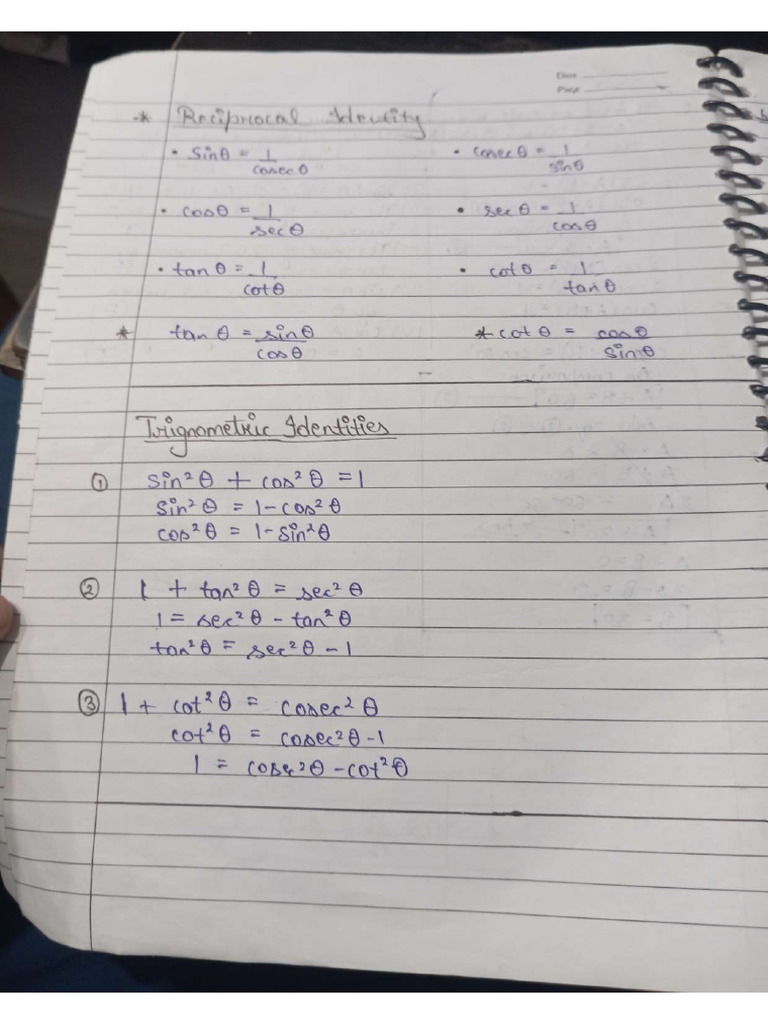 Date
Page
* Reciprocal Identity
• sinθ = 1/cosecθ • cosecθ = 1/sinθ
• cosθ = 1/secθ • secθ = 1/cosθ
• tanθ = 1/cotθ • cotθ = 1/tanθ
* tanθ = sinθ/cosθ * cotθ = cosθ/sinθ
Trignometric Identities
① sin²θ + cos²θ = 1
sin²θ = 1 - cos²θ
cos²θ = 1 - sin²θ
② 1 + tan²θ = sec²θ
1 = sec²θ - tan²θ
tan²θ = sec²θ - 1
③ 1 + cot²θ = cosec²θ
cot²θ = cosec²θ - 1
1 = cosec²θ - cot²θ